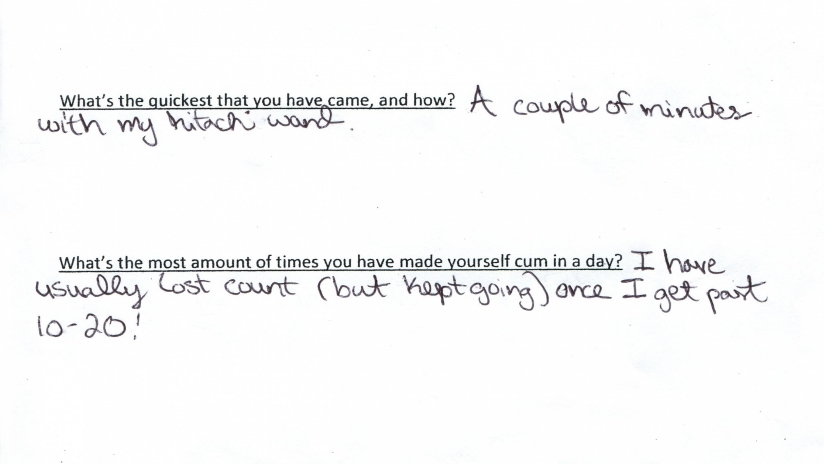 What's the quickest that you have came, and how? A couple of minutes
with my hitachi wand.
What's the most amount of times you have made yourself cum in a day? I have
usually lost count (but kept going) once I get past
10-20!